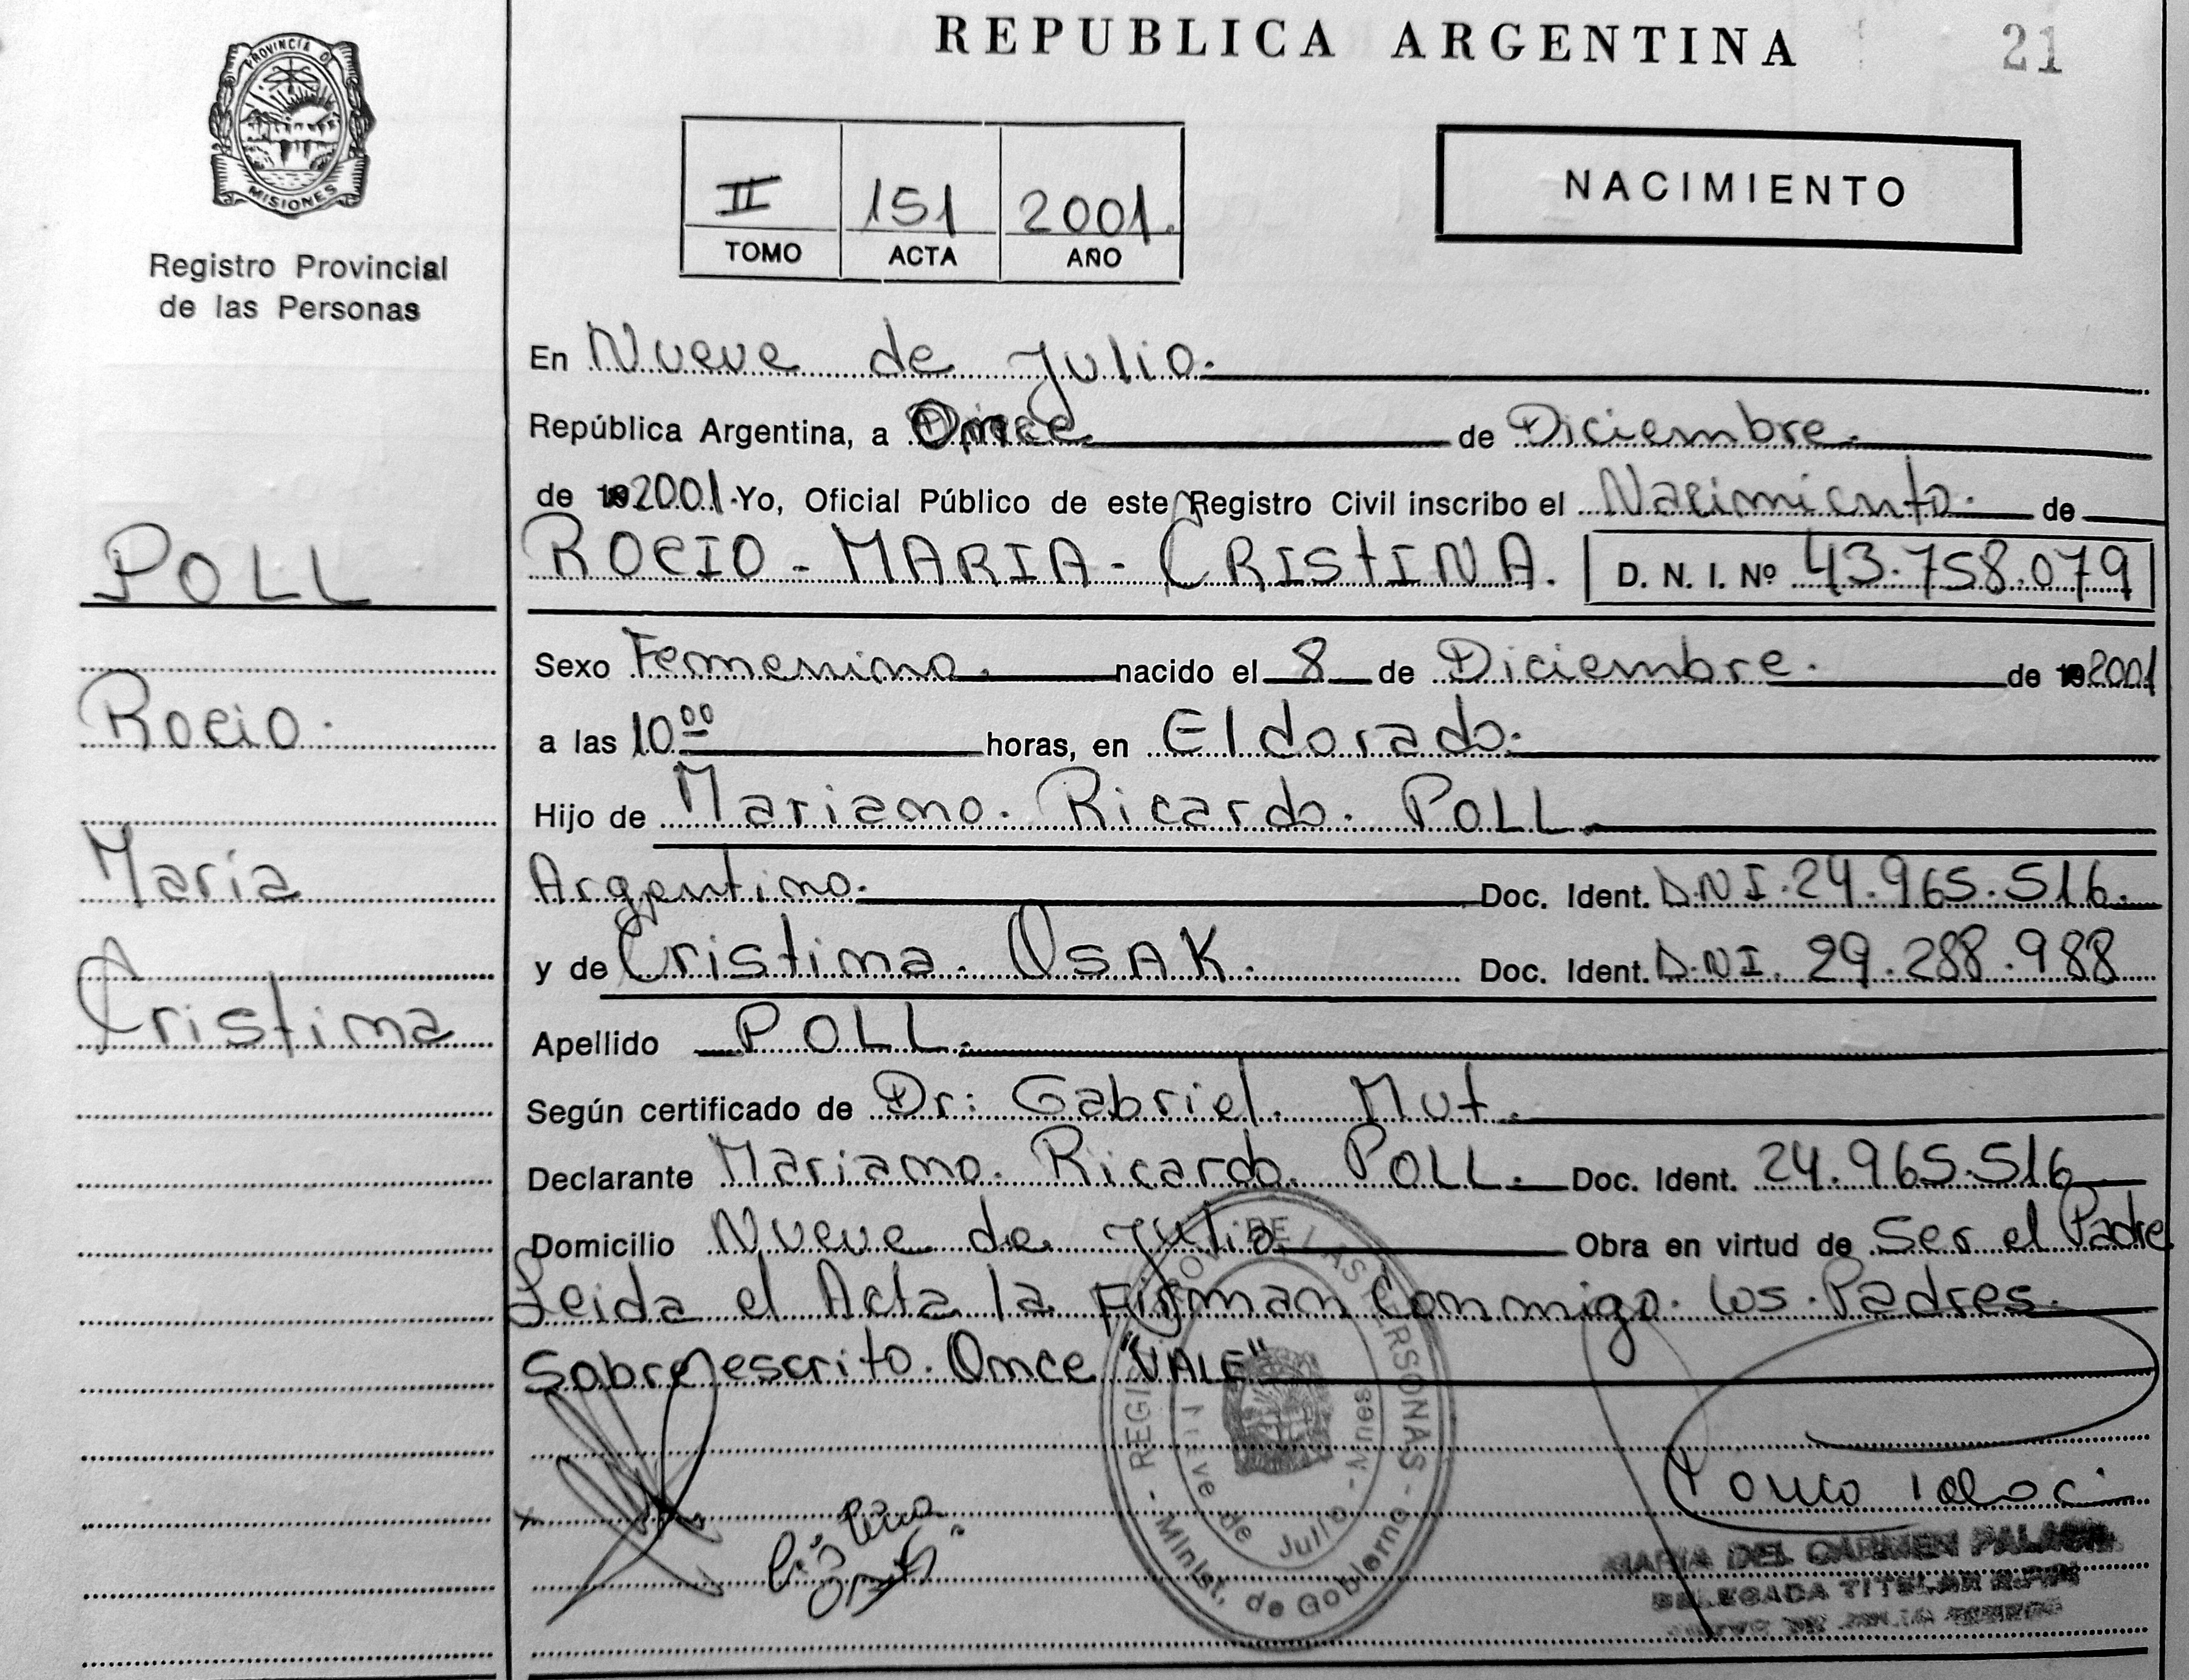 REPUBLICA ARGENTINA
21
PROVINCIA D
MISIONES
Registro Provincial
de las Personas
II 151 2001.
TOMO ACTA AÑO
NACIMIENTO
En Nueve de Julio.
República Argentina, a Once de Diciembre.
de 19 2001. Yo, Oficial Público de este Registro Civil inscribo el Nacimiento. de
ROCIO - MARIA - CRISTINA. D. N. I. Nº 43.758.079
POLL
Rocio.
María
Cristina
Sexo Femenino. nacido el 8 de Diciembre. de 19 2001
a las 10 00 horas, en Eldorado.
Hijo de Mariano. Ricardo. POLL.
Argentino. Doc. Ident. D.N.I. 24.965.516.
y de Cristina. OSAK. Doc. Ident. D.N.I. 29.288.988
Apellido POLL.
Según certificado de Dr: Gabriel. Mut.
Declarante Mariano. Ricardo. POLL. Doc. Ident. 24.965.516
Domicilio Nueve de Julio. Obra en virtud de Ser el Padre
Leida el Acta la Firman Conmigo. los. Padres.
Sobreescrito. Once "VALE"
DE LAS PERSONAS
de Julio - Mnes
Minist. de Gobierno
MARIA DEL CARMEN
DELEGADA TITULAR